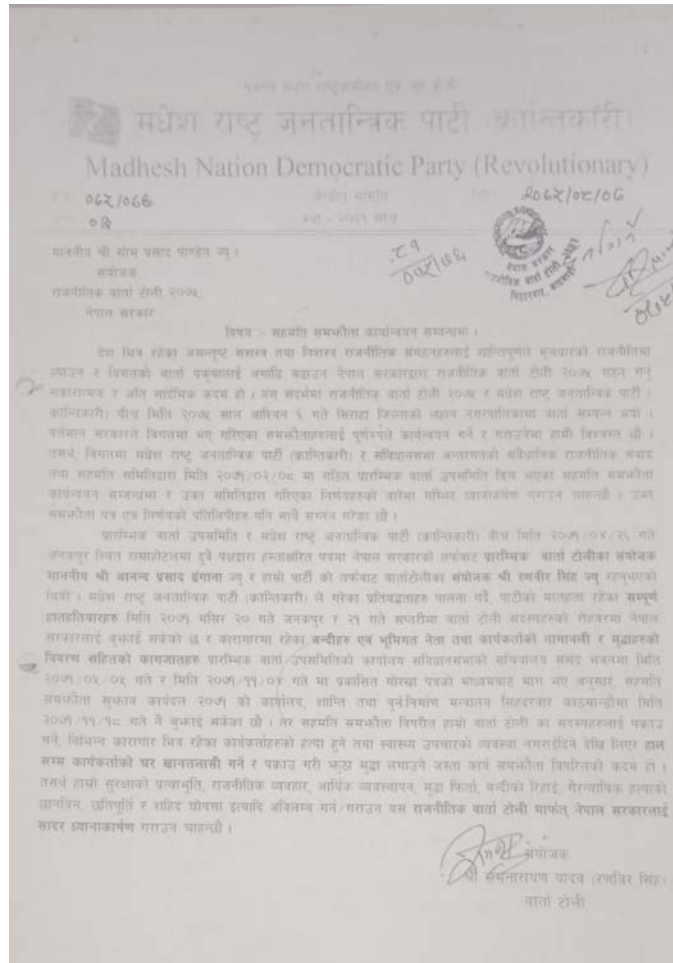 मधेश राष्ट्र जनतान्त्रिक पार्टी (क्रान्तिकारी)
Madhesh Nation Democratic Party (Revolutionary)
केन्द्रीय समिति
माननीय श्री सोम प्रसाद पाण्डेय ज्यु ।
संयोजक
राजनीतिक वार्ता टोली २०७५
नेपाल सरकार
विषय :- सहमति समझौता कार्यान्वयन सम्बन्धमा ।
देश भित्र रहेका असन्तुष्ट सशस्त्र तथा निशस्त्र राजनीतिक संगठनहरुलाई शान्तिपूर्ण मूलधारको राजनीतिमा
ल्याउन र विगतको वार्ता प्रकृयालाई अगाडि बढाउन नेपाल सरकारद्वारा राजनीतिक वार्ता टोली २०७५ गठन गर्नु
सकारात्मक र अति सार्दभिक कदम हो । यस संदर्भमा राजनीतिक वार्ता टोली २०७५ र मधेश राष्ट्र जनतान्त्रिक पार्टी
(क्रान्तिकारी) बीच मिति २०७५ साल आश्विन ६ गते सिराहा जिल्लाको लहान नगरपालिकामा वार्ता सम्पन्न भयो ।
वर्तमान सरकारले विगतमा भए गरिएका समझौताहरुलाई पूर्णरुपले कार्यान्वयन गर्ने र गराउनेमा हामी विश्वस्त छौ ।
तसर्थ, विगतमा मधेश राष्ट्र जनतान्त्रिक पार्टी (क्रान्तिकारी) र संविधानसभा अन्तरगतको संवैधानिक राजनीतिक संवाद
तथा सहमति समितिद्वारा मिति २०७१/०२/०८ मा गठित प्रारम्भिक वार्ता उपसमिति बिच भएका सहमति समझौता
कार्यन्वयन सम्बन्धमा र उक्त समितिद्वारा गरिएका निर्णयहरुको बारेमा गम्भिर ध्यानाकर्षण गराउन चाहन्छौ । उक्त
समझौता पत्र एवं निर्णयको प्रतिलिपीहरु पनि साथै संलग्न गरेका छौ ।
प्रारम्भिक वार्ता उपसमिति र मधेश राष्ट्र जनतान्त्रिक पार्टी (क्रान्तिकारी) बीच मिति २०७१/०४/२६ गते
जनकपुर स्थित रामाहोटलमा दुवै पक्षद्वारा हस्ताक्षरित पत्रमा नेपाल सरकारको तर्फबाट प्रारम्भिक वार्ता टोलीका संयोजक
माननीय श्री आनन्द प्रसाद ढुंगाना ज्यु र हाम्रो पार्टी को तर्फबाट वार्ताटोलीका संयोजक श्री रणवीर सिंह ज्यु रहनुभएको
थियो । मधेश राष्ट्र जनतान्त्रिक पार्टी (क्रान्तिकारी) ले गरेका प्रतिबद्धताहरु पालना गर्दै, पार्टीको मातहता रहेका सम्पूर्ण
हातहतियारहरु मिति २०७१ मंसिर २० गते जनकपुर र २१ गते सप्तरीमा वार्ता टोली सदस्यहरुको रोहवरमा नेपाल
सरकारलाई बुझाई सकेको छ र कारागारमा रहेका बन्दीहरु एवं भूमिगत नेता तथा कार्यकर्ताको नामावली र मुद्दाहरुको
विवरण सहितको कागजातहरु प्रारम्भिक वार्ता उपसमितिको कार्यालय संविधानसभाको सचिवालय संसद भवनमा मिति
२०७१/०५/०५ गते र मिति २०७१/११/०४ गते मा प्रकासित गोरखा पत्रको माध्यमबाट माग भए अनुसार, सहमति
समझौता सुझाव कार्यदल २०७१ को कार्यालय, शान्ति तथा पुर्ननिर्माण मन्त्रालय सिंहदरवार काठमान्डौमा मिति
२०७१/११/१८ गते नै बुझाई सकेका छौ । तर सहमति समझौता विपरीत हाम्रो वार्ता टोली का सदस्यहरुलाई पक्राउ
गर्ने, विभिन्न कारागार भित्र रहेका कार्यकर्ताहरुको हत्या हुने तथा स्वास्थ्य उपचारको व्यवस्था नगराईदिने देखि लिएर हाल
सम्म कार्यकर्ताको घर खानतलासी गर्ने र पक्राउ गरी झुठा मुद्दा लगाउने जस्ता कार्य समझौता विपरितको कदम हो ।
तसर्थ हाम्रो सुरक्षाको प्रत्याभुति, राजनीतिक व्यवहार, आर्थिक व्यवस्थापन, मुद्दा फिर्ता, बन्दीको रिहाई, गैरन्यायिक हत्याको
छानविन, छतिपूर्ति र शहिद घोषणा इत्यादि अविलम्ब गर्न/गराउन यस राजनीतिक वार्ता टोली मार्फत् नेपाल सरकारलाई
सादर ध्यानाकर्षण गराउन चाहन्छौ ।
संयोजक
श्री रामनारायण यादव (रणविर सिंह)
वार्ता टोली